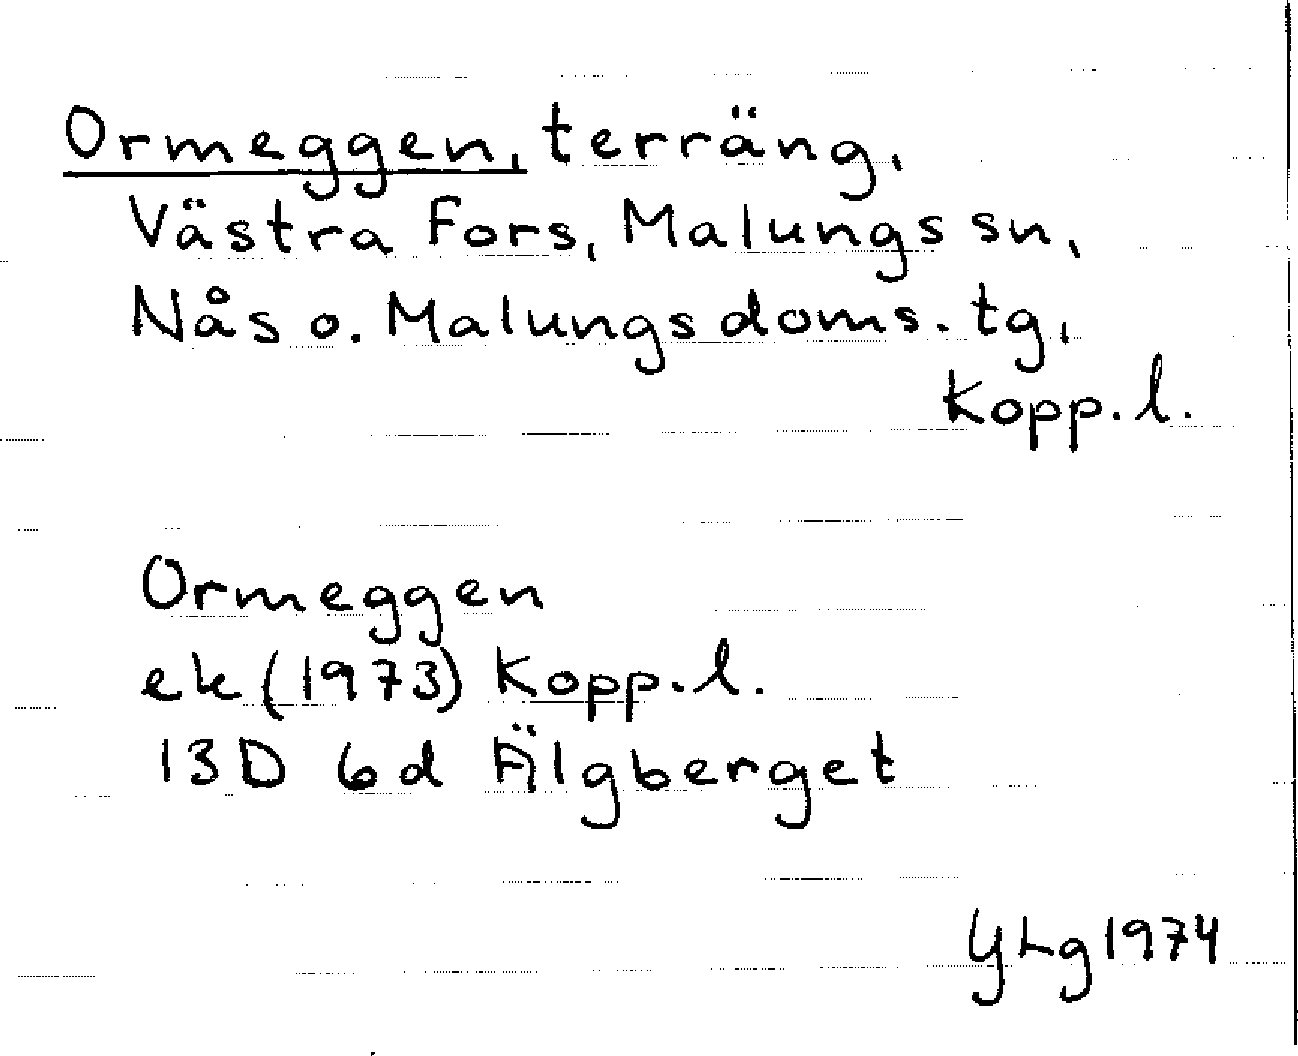 Ormeggen, terräng,
Västra Fors, Malungs sn,
Nås o. Malungs doms. tg,
Kopp. l.
Ormeggen
ek (1973) Kopp. l.
13D 6d Älgberget
YLg 1974